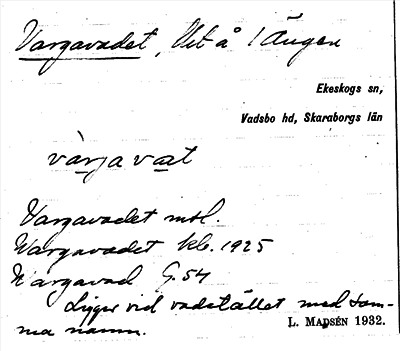 Vargavadet, Ut å l Ängen
Ekeskogs sn,
Vadsbo hd, Skaraborgs län
varjavat
Vargavadet msl.
Wargavadet kb. 1925
Wargavad G. 54
Ligger vid vadstället med sam-
ma namn.
L. MADSÉN 1932.